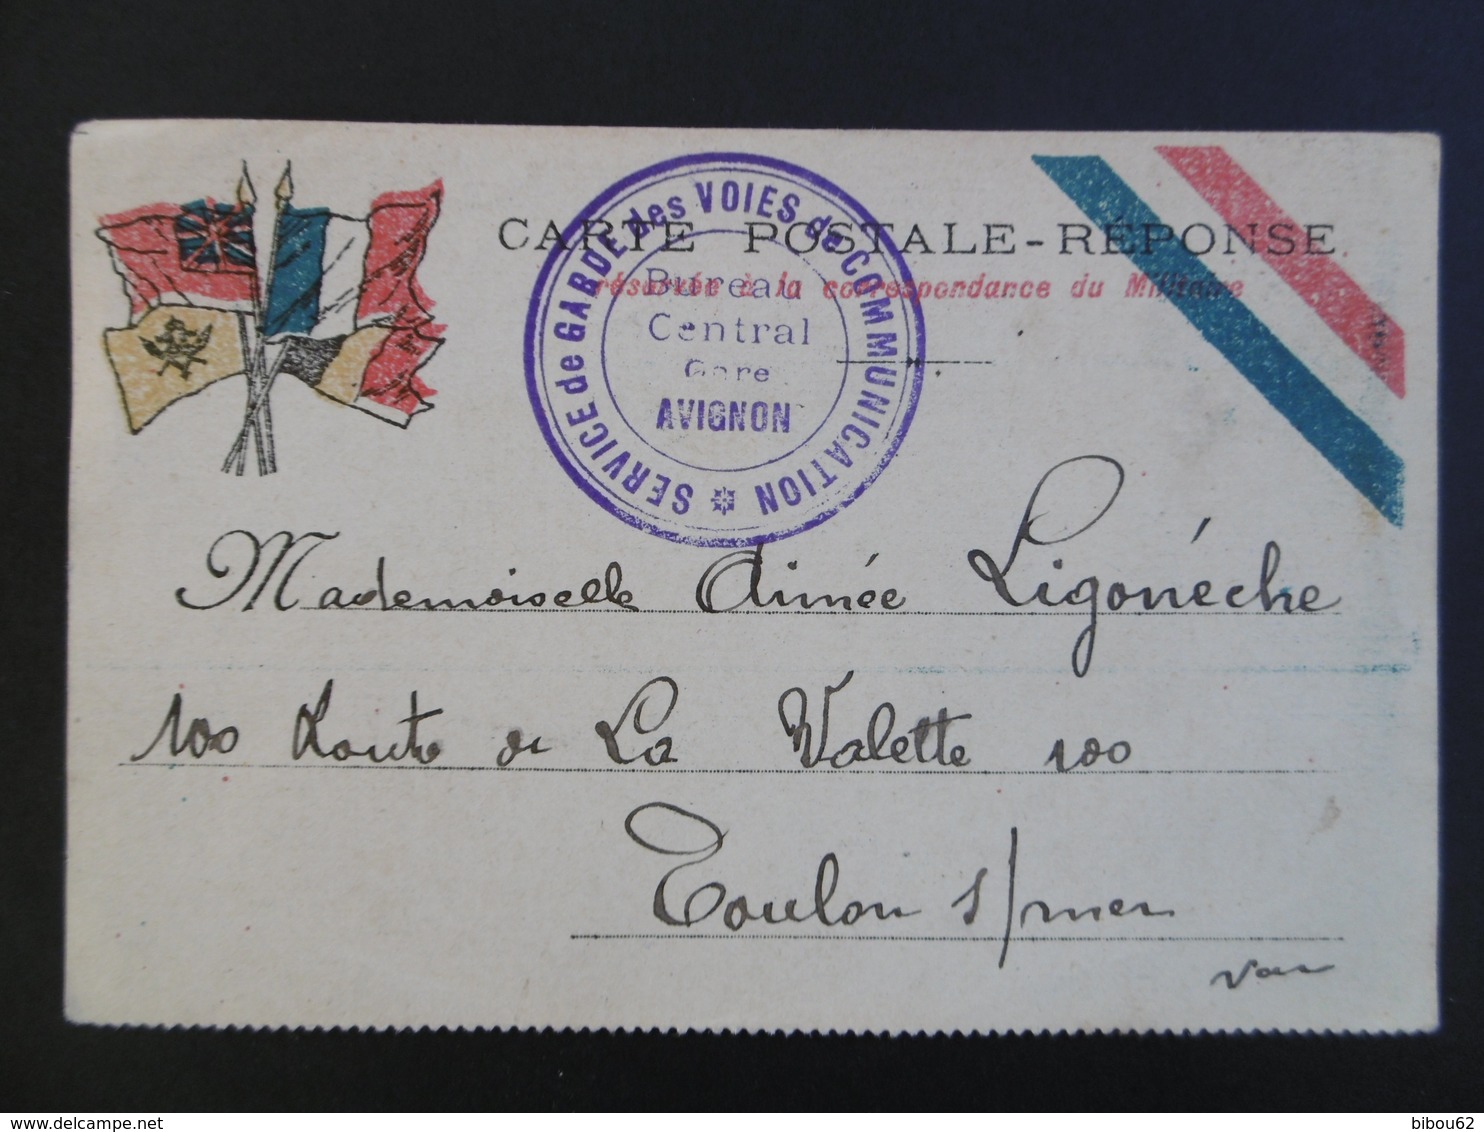 CARTE POSTALE-RÉPONSE
réservée à la correspondance du Militaire
SERVICE de GARDE des VOIES de COMMUNICATION
Bureau
Central
Gare
AVIGNON
Mademoiselle Aimée Ligonéche
100 Route de La Valette 100
Toulon s/mer
Var
delcampe.net
bibou62